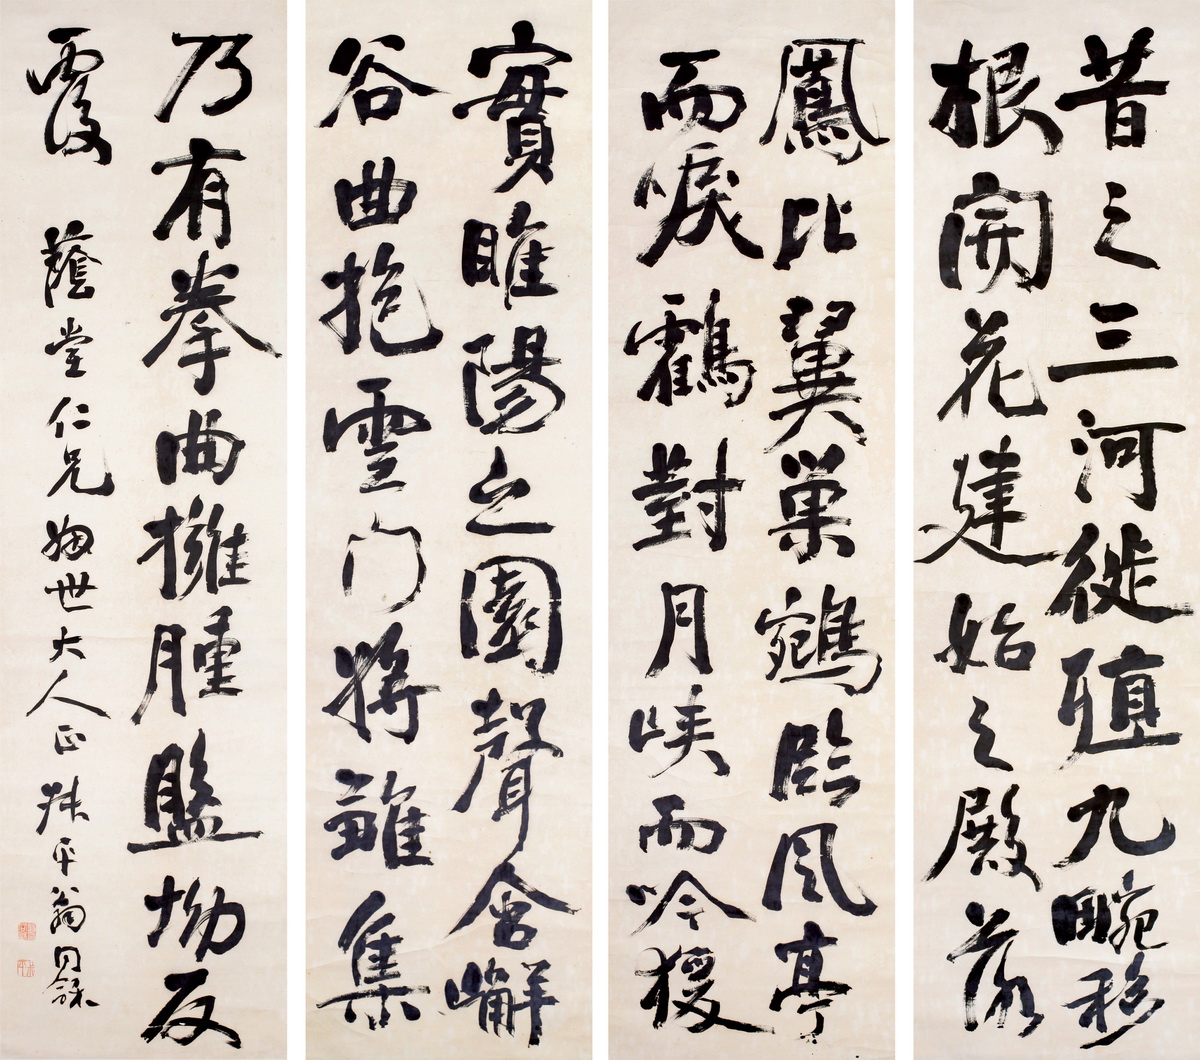 昔之三河徙殖九畹移
根開花建始之殿落
實睢陽之園聲含嶰
谷曲抱雲門將雛集
鳳比翼巢鵷臨風亭
而唳鶴對月峽而吟猨
乃有拳曲擁腫盤坳反
覆 蔭堂仁兄姻世大人正 叔平翁同龢